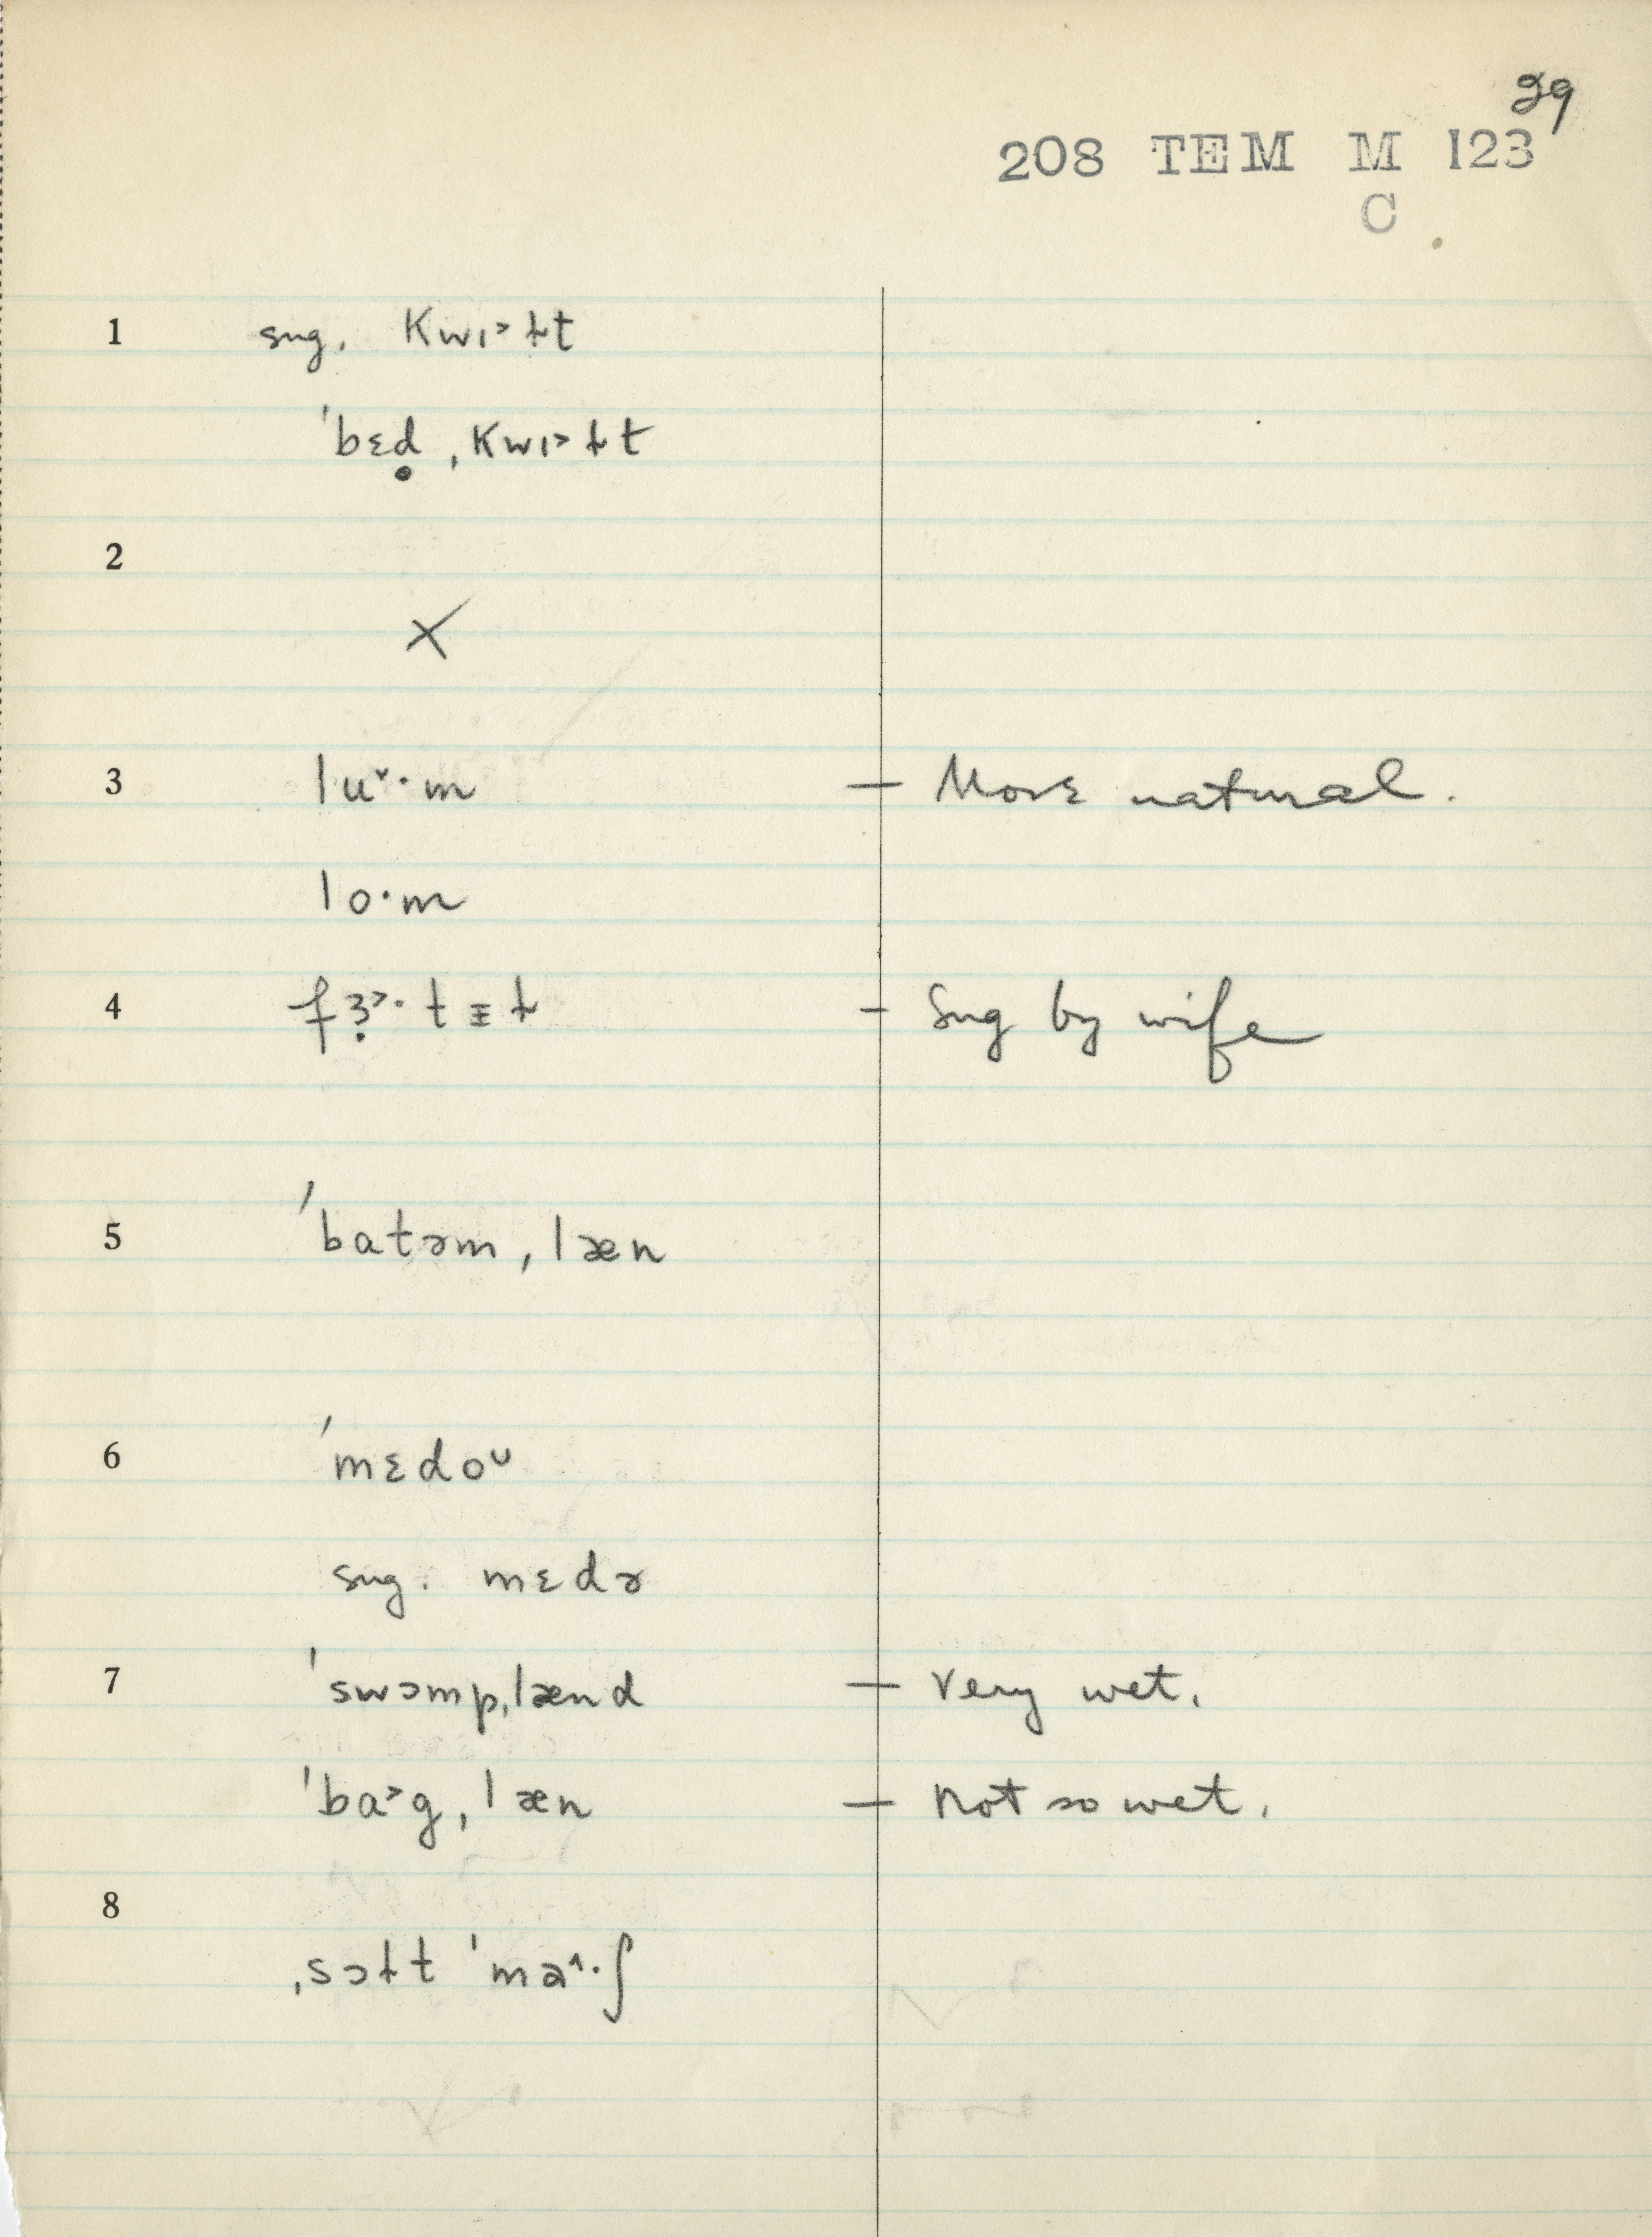 29
208 TEM M 123
C
1 sug. kwɪ˃ɫt
ˈbɛḍˌkwɪ˃ɫt
2
X
3 luᵛ·m — More natural.
lo·m
4 fɜ̣˃·tᵻɫ — Sug by wife
5 ˈbatəmˌlæn
6 ˈmɛdoᴜ
sug. mɛdə
7 ˈswɔmpˌlænd — Very wet.
ˈba˃gˌlæn — not so wet.
8
ˌsɔɫt ˈma^·ʃ